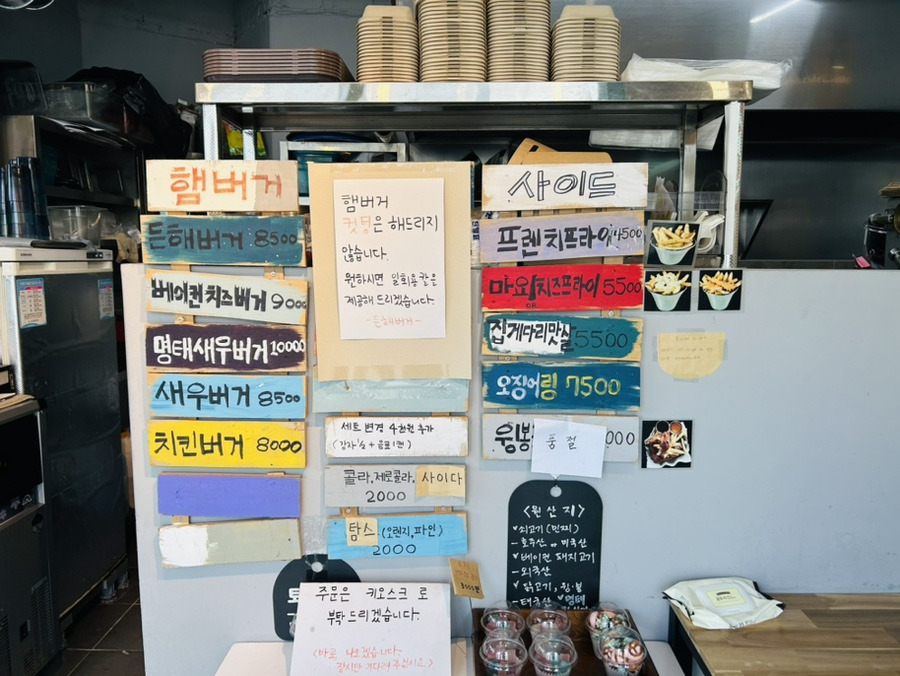 햄버거
든해버거 8500
베이컨치즈버거 9000
명태새우버거 10000
새우버거 8500
치킨버거 8000
햄버거
컷팅은 해드리지
않습니다.
원하시면 일회용칼은
제공해 드리겠습니다.
-든해버거-
세트 변경 4천원 추가
(감자'S + 음료1캔)
콜라, 제로콜라, 사이다
2000
탐스 (오렌지, 파인)
2000
사이드
프렌치프라이 4500
마요치즈프라이 5500
집게다리맛살 5500
오징어링 7500
윙봉
품절
000
<원산지>
쇠고기 (민찌)
- 호주산 or 미국산
베이컨 돼지고기
- 외국산
닭고기, 윙·봉
- 태국산 명태
주문은 키오스크 로
부탁 드리겠습니다.
<바로 나오겠습니다.
잠시만 기다려 주십시오.>